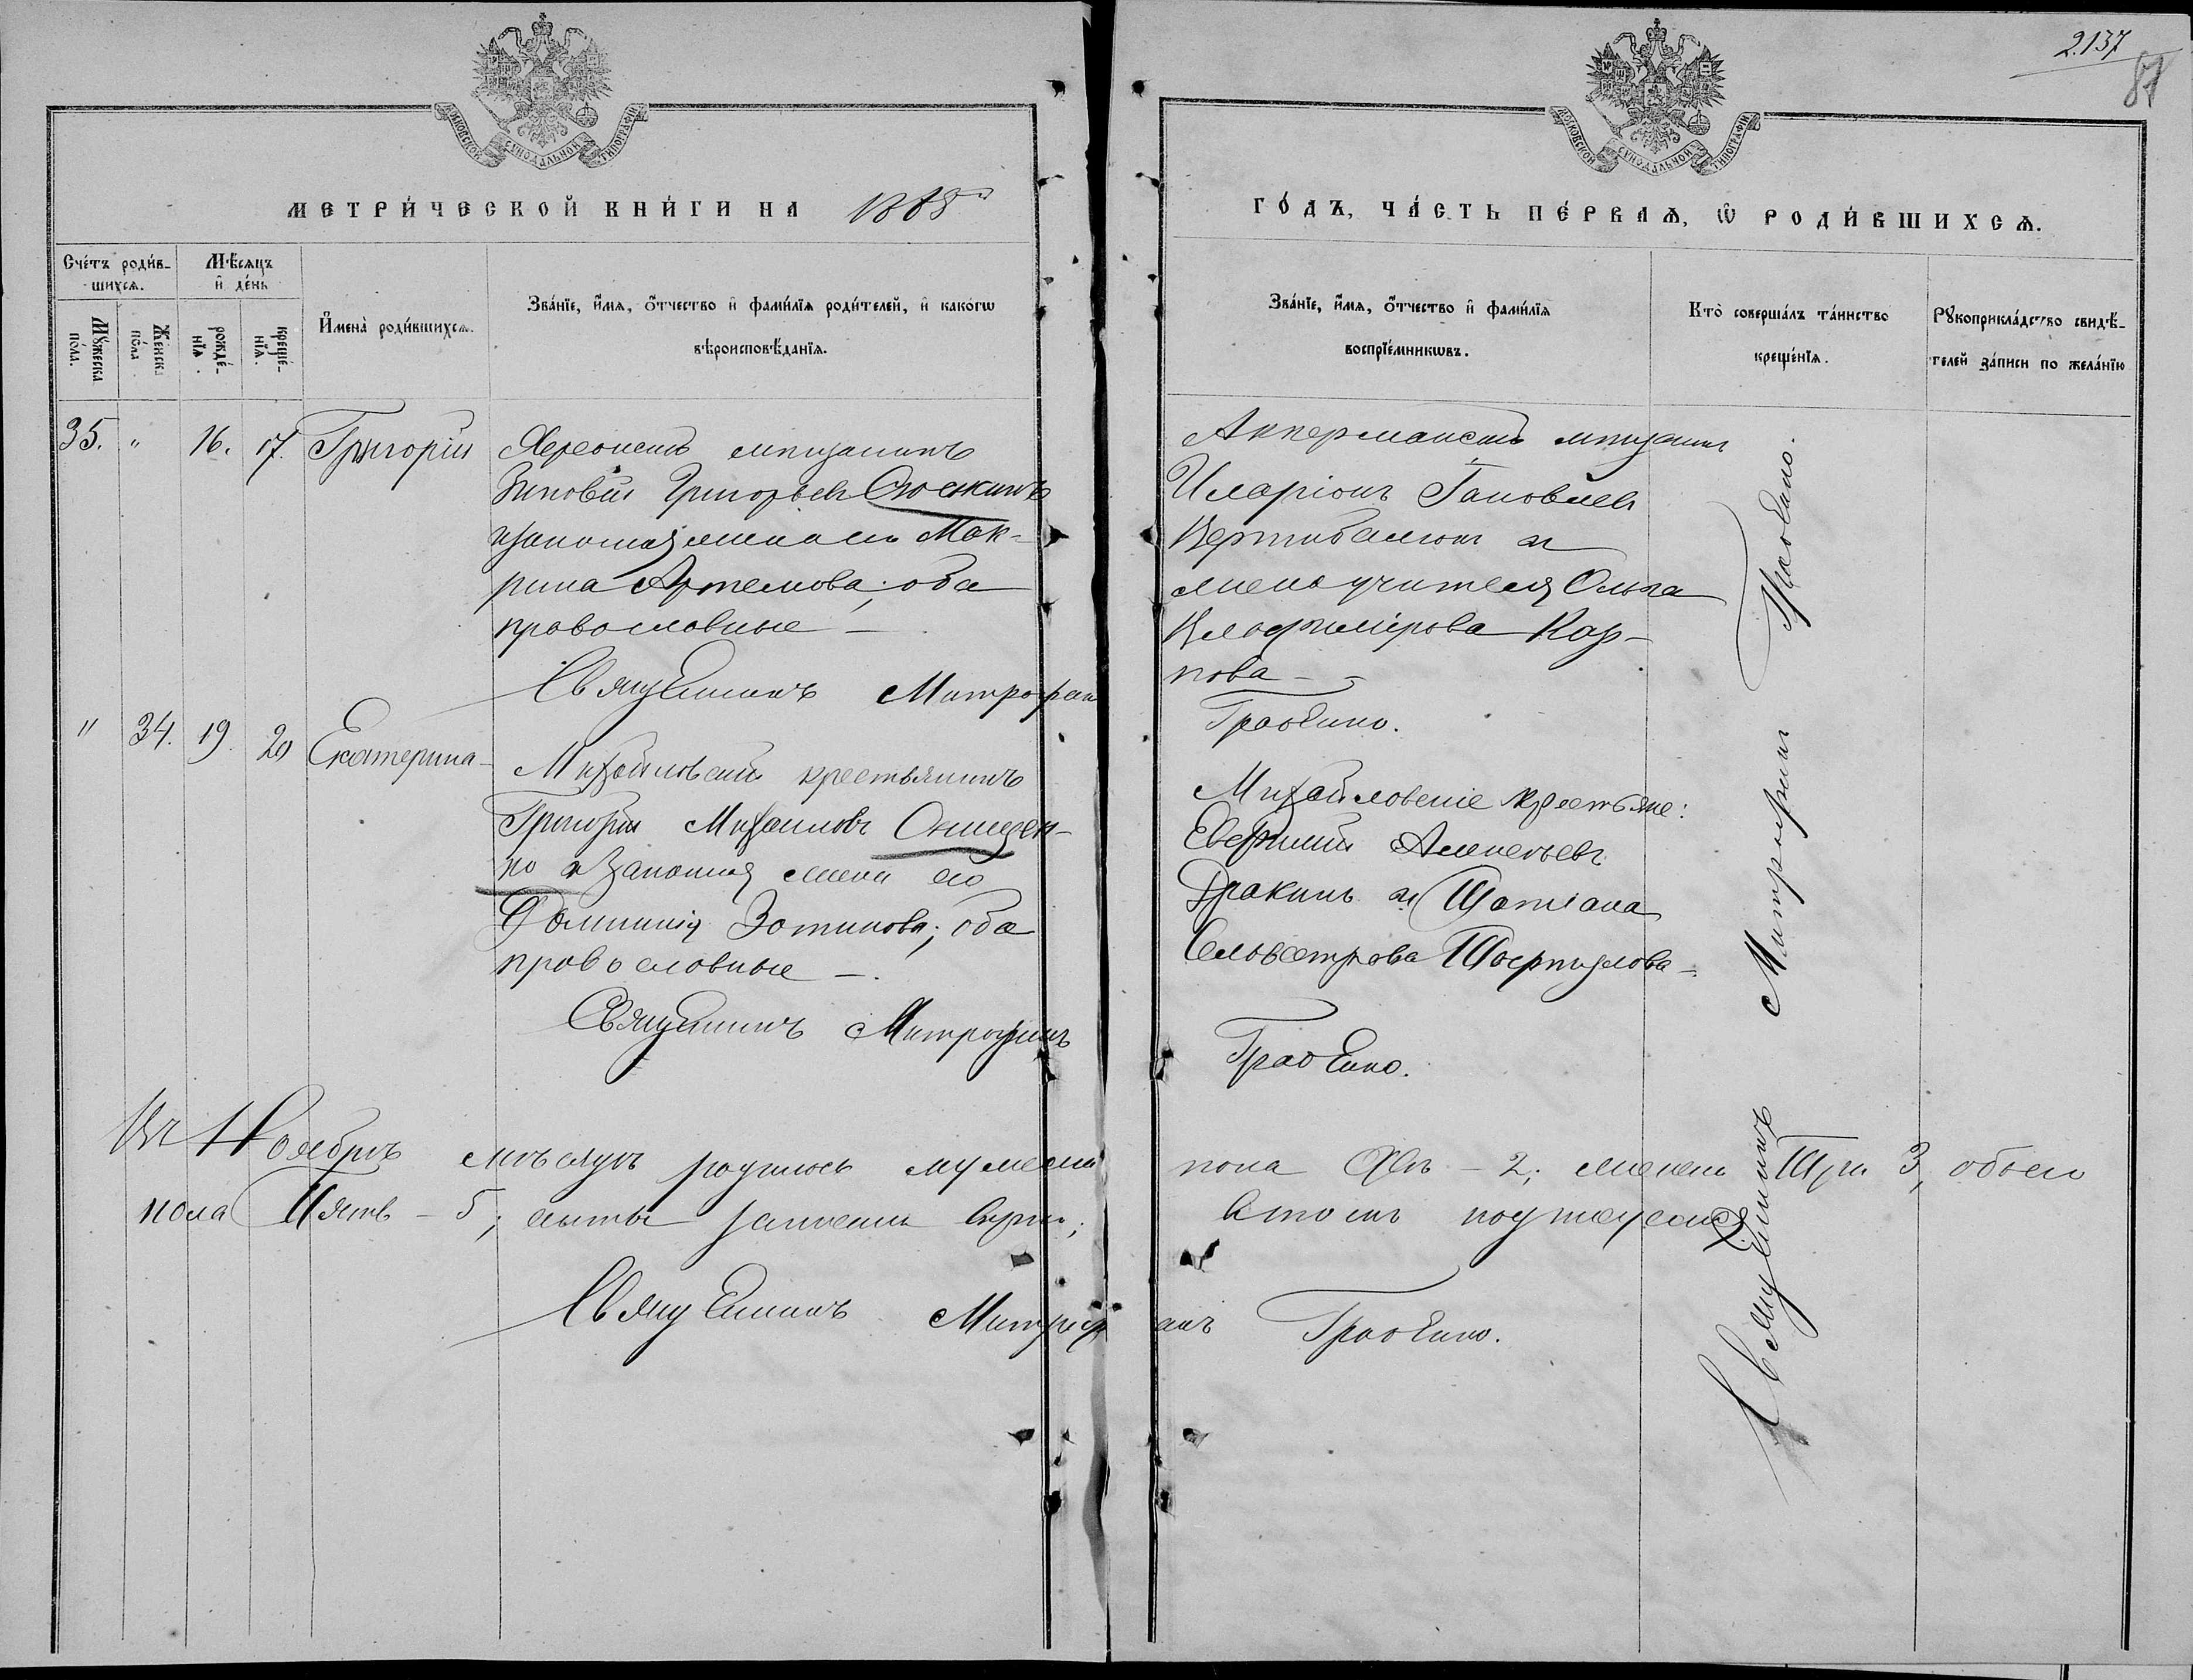 2.137
87
МОСКОВСКОЙ СѴНОДАЛЬНОЙ ТИПОГРАФІИ
МОСКОВСКОЙ СѴНОДАЛЬНОЙ ТИПОГРАФІИ
МЕТРИ́ЧЕСКОЙ КНИ́ГИ НА 1885
ГО́ДЪ, ЧА́СТЬ ПЕ́РВАѦ, Ѿ РОДИ́ВШИХСѦ.
Сче́тъ роди́в-
шихсѧ.
Мꙋжеска по́ла.
Же́нска по́ла.
Мѣ́сѧцъ
и҆ де́нь
рожде́-
нїѧ.
креще́-
нїѧ.
И҆мена̀ роди́вшихсѧ.
Зва́нїе, и҆́мѧ, ѻ҆́тчество и҆ фами́лїѧ роди́телей, и҆ како́гѡ
вѣроисповѣ́данїѧ.
Зва́нїе, и҆́мѧ, ѻ҆́тчество и҆ фами́лїѧ
воспрїе́мникѡвъ.
Кто̀ соверша́лъ та́инство
креще́нїѧ.
Рꙋкоприкла́дство свидѣ́-
телей за́писи по жела́нїю
35. " 16. 17. Григорій
Херсонскій мѣщанинъ
Зиновій Григорьевъ
законная жена его Мак-
рина Артемова; оба
православные —
Священникъ Митрофан
Аккерманскій мѣщанинъ
Иларіонъ Яковлевъ
и
жена учителя Ольга
Владимірова Кар-
пова —
" 34. 19. 20 Екатерина
Михайловскій крестьянинъ
Григорій Михаиловъ Онищен-
ко и законная жена его
Домникія Зотикова; оба
православные —.
Священникъ Митрофанъ
Михайловскіе крестьяне:
Евфимій Алексѣевъ
Дракинъ и Татіана
Сельвестрова
Въ Ноябрѣ мѣсяцѣ родилось мужеска пола два — 2; женска Три 3, обоего
пола Пять — 5; акты записаны вѣрно; въ томъ подписуемся.
Священникъ Митрофанъ
Священникъ Митрофанъ